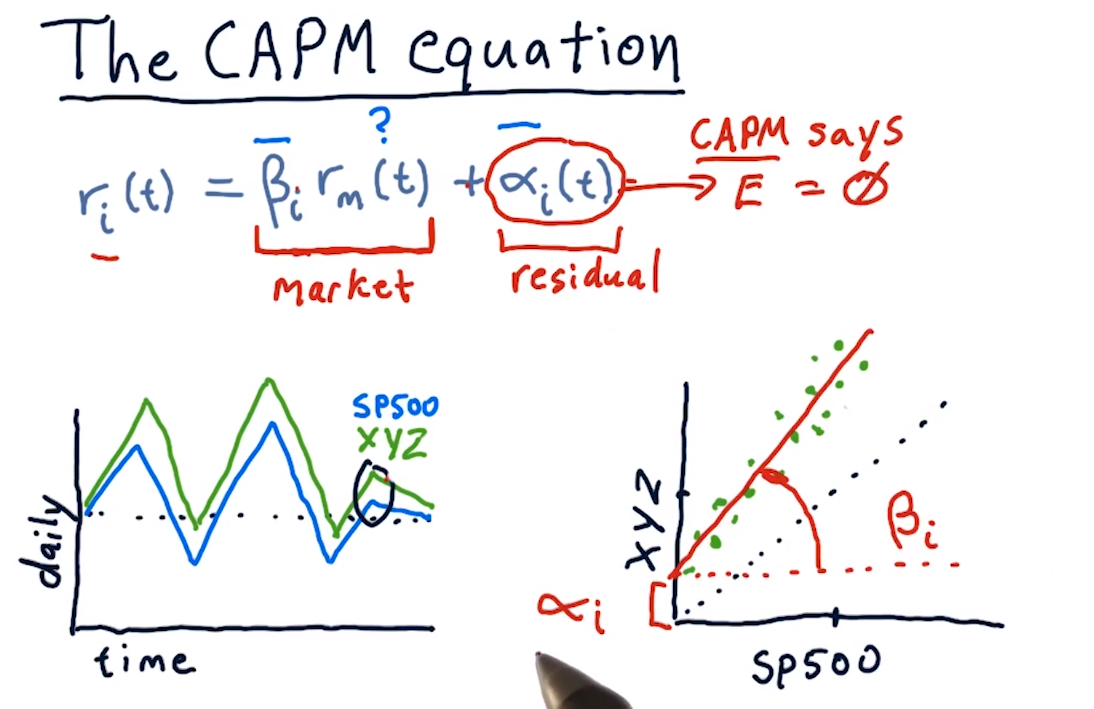 The CAPM equation
?
rᵢ(t) = βᵢ rₘ(t) + αᵢ(t) → CAPM says
E = ∅
market
residual
SP500
XYZ
daily
time
XYZ
βᵢ
αᵢ
SP500